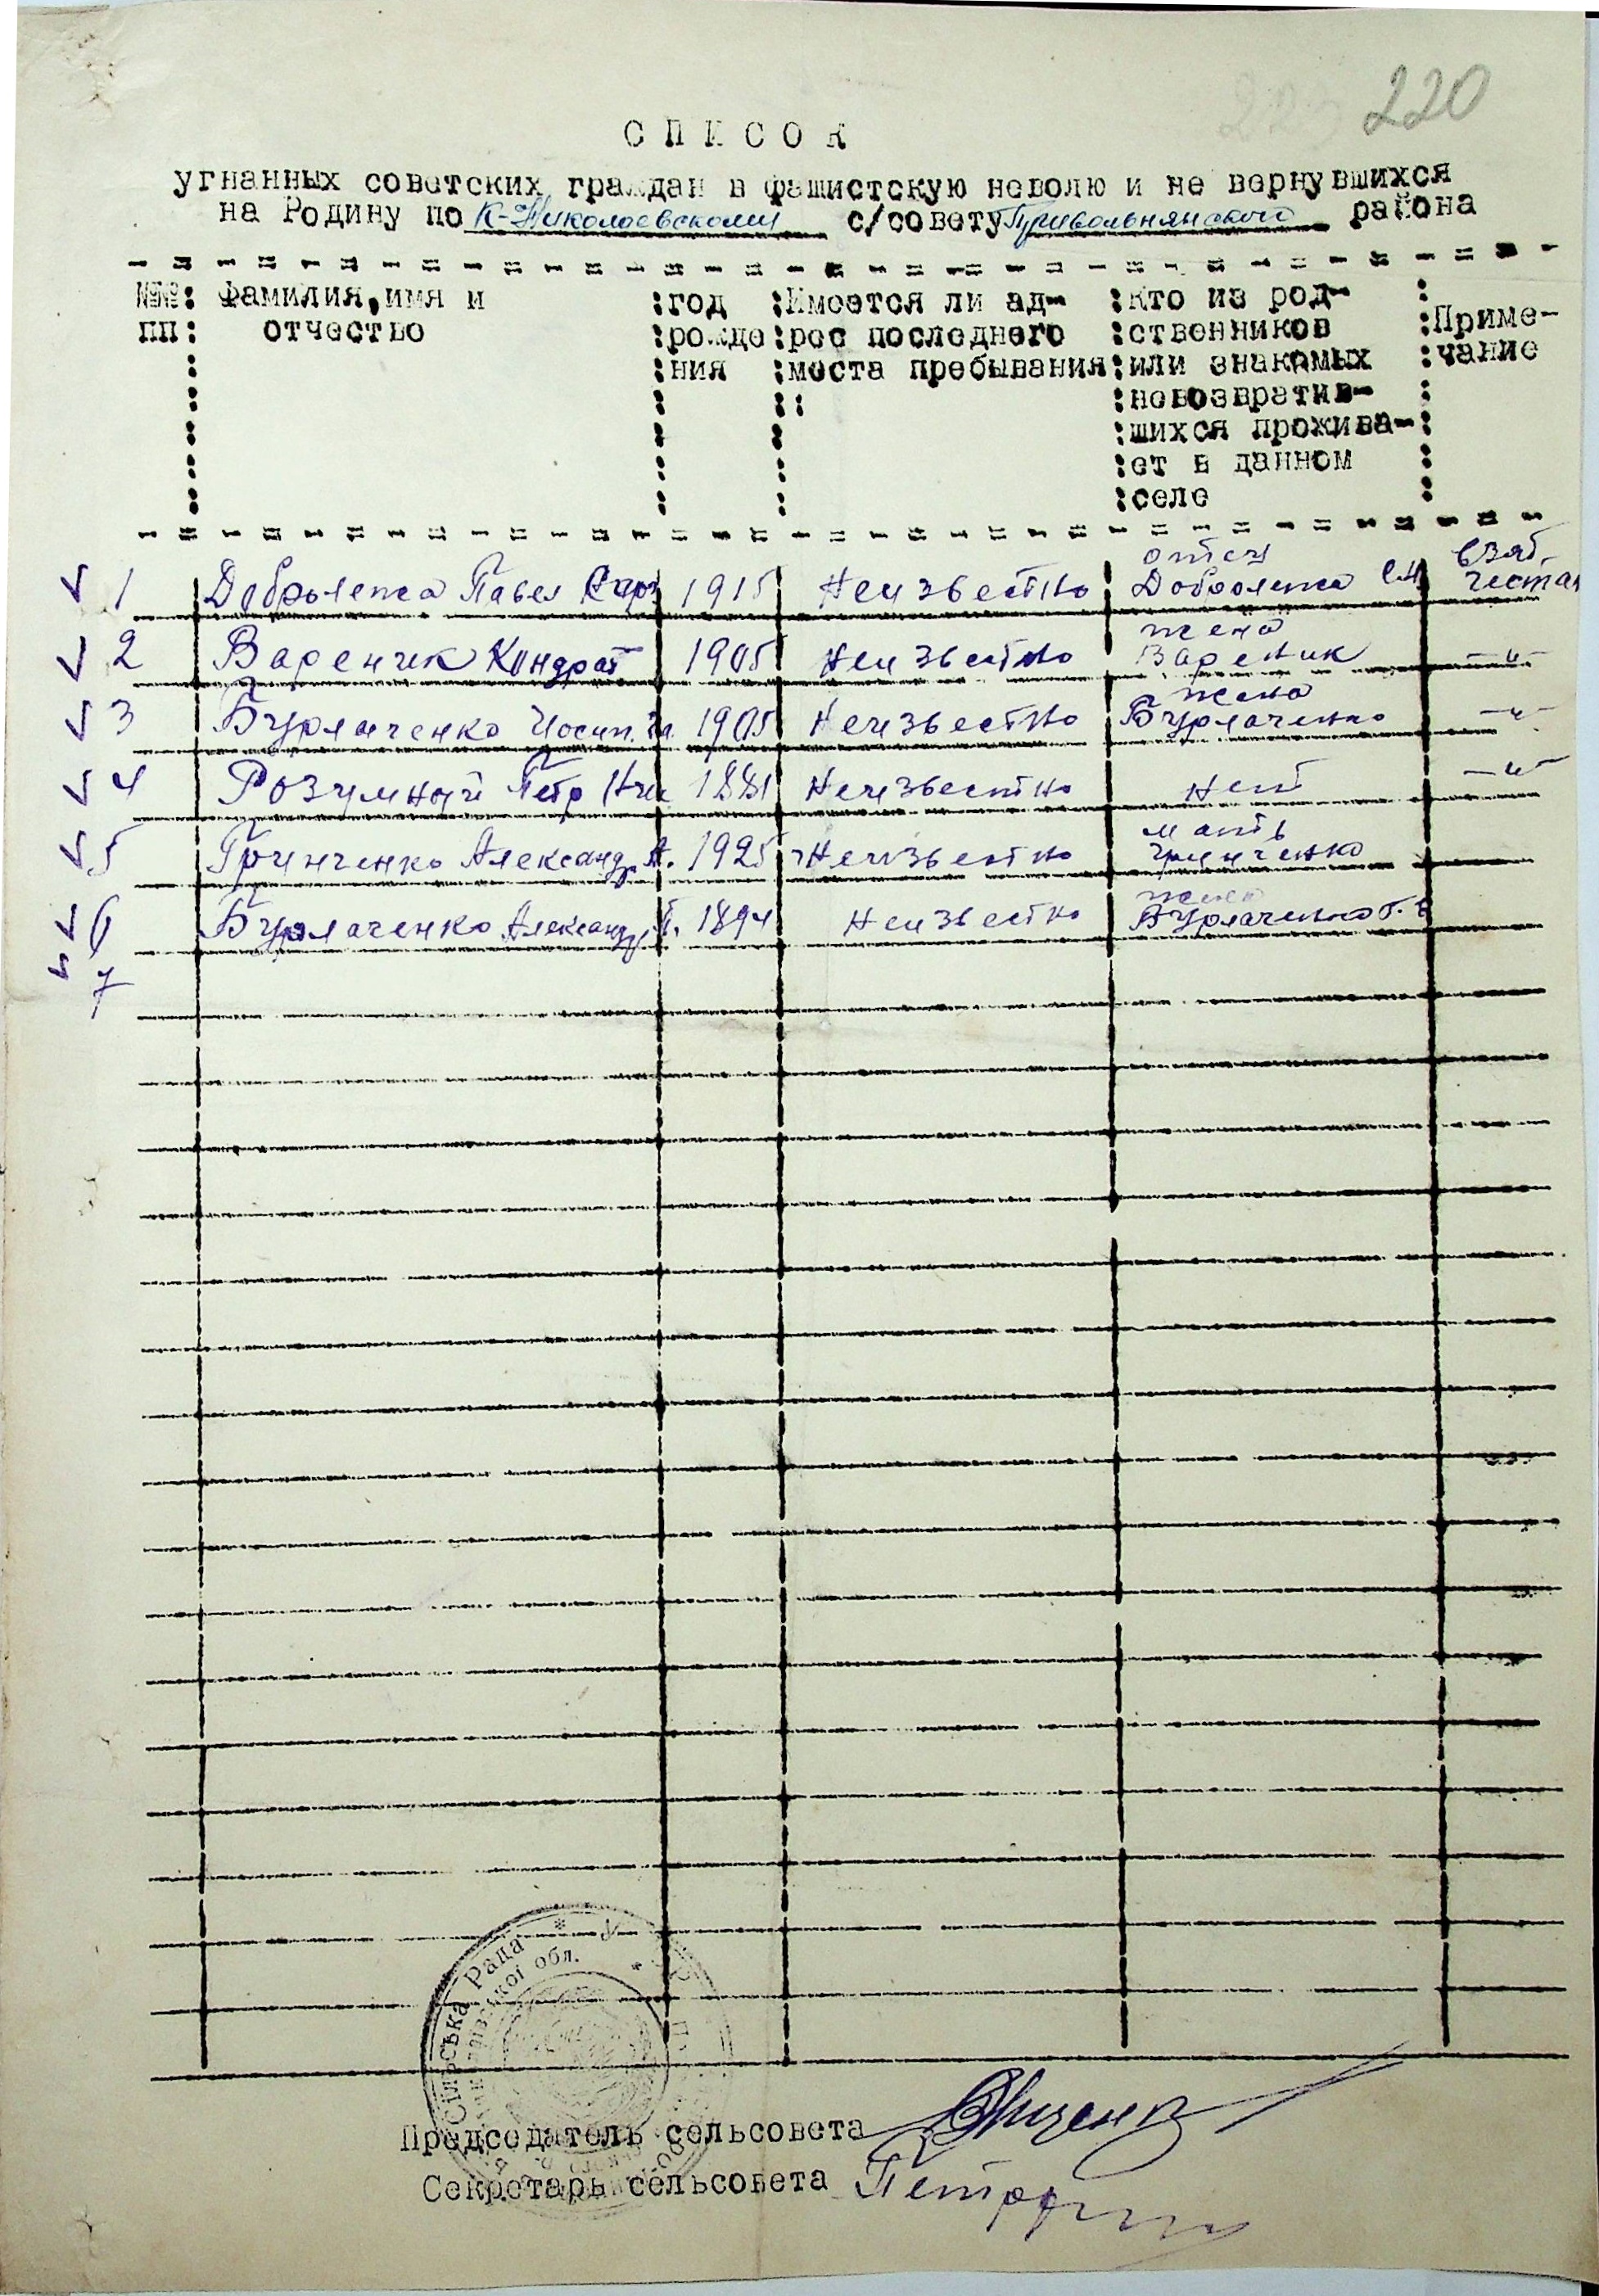 220
СПИСОК
угнанных советских граждан в фашистскую неволю и не вернувшихся
на Родину по К-Николаевскому с/совету Привольнянского района
№№ пп
Фамилия, имя и отчество
год рождения
Имеется ли адрес последнего места пребывания
Кто из родственников или знакомых невозвратившихся проживает в данном селе
Примечание
1 Доброляжа Павел 1915 Неизвестно отец Доброляжа взят
2 Вареник Кондрат 1905 Неизвестно жена Вареник -"-
3 Бурлаченко Иосип 1905 Неизвестно жена Бурлаченко -"-
4 Розумный Петр 1881 Неизвестно нет -"-
5 Гринченко Александ. А. 1925 Неизвестно мать Гринченко
6 Бурлаченко Александ. 1894 Неизвестно жена Бурлаченко
7
Сільська Рада
обл.
Председатель сельсовета
Секретарь сельсовета